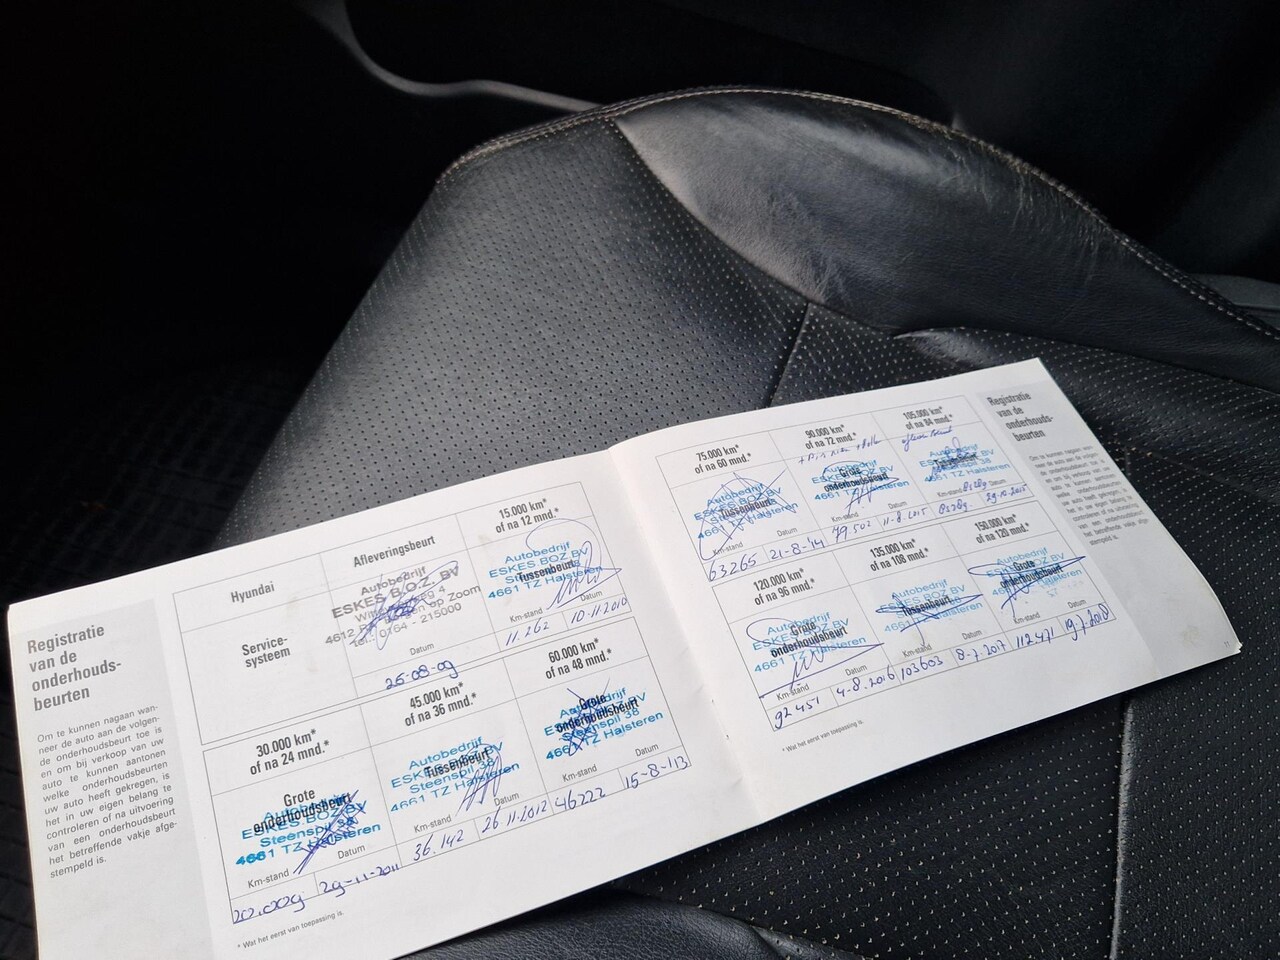 Registratie
van de
onderhouds-
beurten
Om te kunnen nagaan wan-
neer de auto aan de volgen-
de onderhoudsbeurt toe is
en om bij verkoop van uw
auto te kunnen aantonen
welke onderhoudsbeurten
uw auto heeft gekregen, is
het in uw eigen belang te
controleren of na uitvoering
van een onderhoudsbeurt
het betreffende vakje afge-
stempeld is.
Hyundai
Service-
systeem
Afleveringsbeurt
Autobedrijf
ESKES B.O.Z. BV
4612 op Zoom
Tel. 0164 - 215000
Datum
26-08-09
15.000 km*
of na 12 mnd.*
Autobedrijf
ESKES BOZ BV
Tussenbeurt
4661 TZ Halsteren
Km-stand Datum
11.262 10-11-2010
30.000 km*
of na 24 mnd.*
Grote
onderhoudsbeurt
Autobedrijf
ESKES BOZ BV
Steenspil 38
4661 TZ Halsteren
Km-stand Datum
20.009 29-11-2011
45.000 km*
of na 36 mnd.*
Autobedrijf
ESKES BOZ BV
Tussenbeurt
Steenspil 38
4661 TZ Halsteren
Km-stand Datum
36.142 26 11.2012
60.000 km*
of na 48 mnd.*
Grote
onderhoudsbeurt
Autobedrijf
ESKES BOZ BV
Steenspil 38
4661 TZ Halsteren
Km-stand Datum
46222 15-8-'13
* Wat het eerst van toepassing is.
75.000 km*
of na 60 mnd.*
Autobedrijf
ESKES BOZ BV
Tussenbeurt
4661 TZ Halsteren
Km-stand Datum
63265 21-8-'14
90.000 km*
of na 72 mnd.*
Autobedrijf
Grote
ESKES BOZ BV
onderhoudsbeurt
4661 TZ Halsteren
Km-stand Datum
79.502 11-8-2015
105.000 km*
of na 84 mnd.*
Autobedrijf
ESKES BOZ BV
Steenspil 38
4661 TZ Halsteren
Km-stand Datum
29.10.2015
120.000 km*
of na 96 mnd.*
Autobedrijf
Grote
ESKES BOZ BV
onderhoudsbeurt
4661 TZ Halsteren
Km-stand Datum
92451 4-8-2016
135.000 km*
of na 108 mnd.*
Autobedrijf
ESKES BOZ BV
Tussenbeurt
4661 TZ Halsteren
Km-stand Datum
103603 8-7-2017
150.000 km*
of na 120 mnd.*
Autobedrijf
Grote
onderhoudsbeurt
Km-stand Datum
112471 19-7-2018
* Wat het eerst van toepassing is.
Registratie
van de
onderhouds-
beurten
Om te kunnen nagaan wan-
neer de auto aan de volgen-
de onderhoudsbeurt toe is
en om bij verkoop van uw
auto te kunnen aantonen
welke onderhoudsbeurten
uw auto heeft gekregen, is
het in uw eigen belang te
controleren of na uitvoering
van een onderhoudsbeurt
het betreffende vakje afge-
stempeld is.